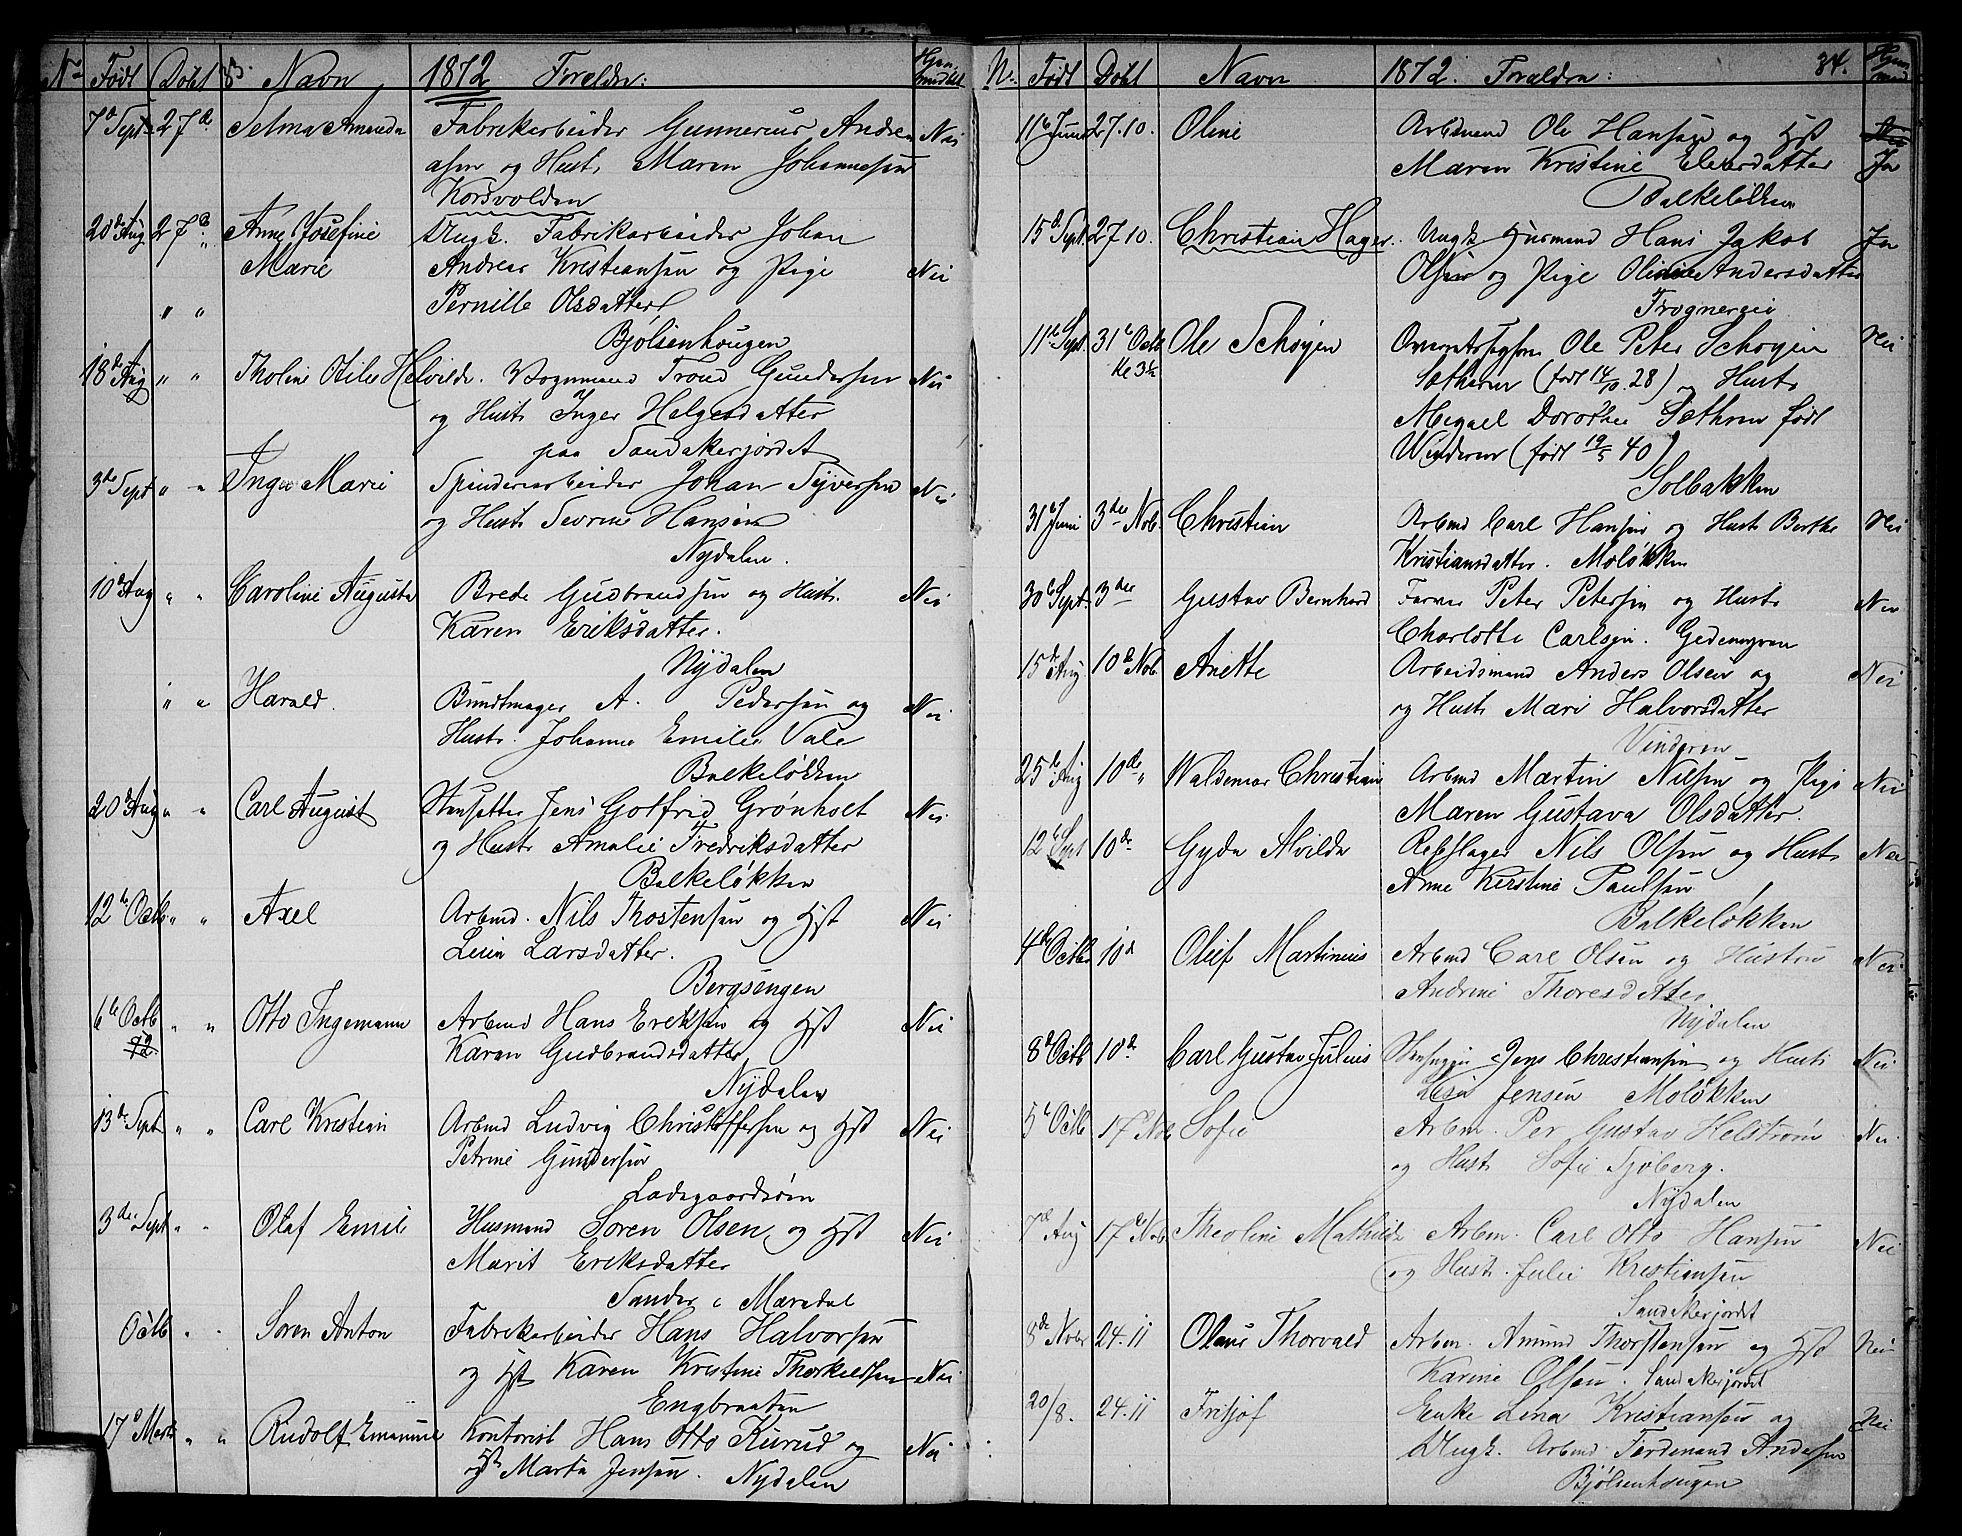 No Født Døbt Navn 1872 Forældre: Hjemmedøbt
7de Sept 27de Selma Amanda Fabrikarbeider Gunnerius Andrea Nei
asen og Hust. Maren Johannessen
Nordvolden
20de Aug 27de Anne Josefine Ungk. Fabrikarbeider Johan
Marie Andreas Kristiansen og Pige Nei
" " Pernille Olsdatter
Bjølsenhougen
18de Aug " " Tholine Otilie Helvilde. Vognmand Trond Gundersen Nei
og Hust. Inger Helgesdatter
paa Sandakerjordet
3de Sept " " Inga Marie Spinderiarbeider Johan Syversen Nei
og Hust. Sevrine Hansen
Nydalen.
10de Aug " " Caroline Augusta Brede Gudbrandsen og Hust. Nei
Karen Eriksdatter.
Nydalen
" " Harald. Bundtmager A. Pedersen og Nei
Hust. Johanne Emilie Vale
Balkeløkken
20de Aug " " Carl August Stensætter Jens Gotfrid Grønholt Nei
og Hust. Amalie Fredriksdatter
Balkeløkken
12te Octb " " Axel Arbmd. Nils Thostensen og Hst Nei
Larsdatter.
Bergsengen
6te Octb " " Otto Ingemann Arbmd Hans Eriksen og Hst Nei
72 Karen Gudbrandsdatter
Nydalen
13de Sept " " Carl Kristian Arbmd Ludvig Christoffersen og Hst Nei
Petrine Gundersen
Ladegaardsøen
3de Sept " " Olaf Emil Husmand Søren Olsen og Hst Nei
Marit Eriksdatter
Sander i Maredal
Octb " " Søren Anton Fabrikarbeider Hans Halvorsen
og Hst Karen Kristine Thorkildsen Nei
Engbraaten
17de Marts " " Rudolf Emanuel Kontorist Hans Otto Kurud og Nei
Hst Marta Jensen. Nydalen
No. Født Døbt Navn 1872. Forældre: 34.
11te Juni 27.10. Oline Arbmand Ole Hansen og Hst Nei
Maren Kristine Eliersdatter Ja
Balkeløkken
15de Sept 27.10. Christian Hager. Ungk Husmand Hans Jakob Ja
Olsen og Pige Oline Andersdatter
Frognerei
11te Sept. 31te Octb Ole Schøyen Ole Peter Schøyen Nei
Kl 3½ Sæthern (født 14/10 28) og Hust.
Dorothea Sæthern født
Winderen (født 19/5 40)
Solbakken
31te Juni 3die Nob. Christian Arbmd Carl Hansen og Hust Berthe Nei
Kristiansdatter. Moløkken
30te Sept. 3die Gustav Bernhard Farver Peter Petersen og Hust. Nei
Charlotte Carlsen.
15de Aug. 10de Nob. Anette Arbeidsmand Anders Olsen og Nei
og Hust. Mari Halvorsdatter
Vinderen
25de Aug 10de " Waldemar Christian Arbmd Martin Nilsen og Pige Nei
Maren Gustava Olsdatter.
12te Sept 10de Gyda Alvilda Rebslager Nils Olsen og Hust. Nei
Anne Kerstine Paulsen
Balkeløkken
4de Octb. 10de Oluf Martinius Arbmd Carl Olsen og Hustru Nei
Andrine Thoresdatter
Nydalen
8de Octb 10de Carl Gustav Julius Jens Christiansen og Hust. Nei
Jensen Moløkken
5te Octb 17de Nob Sofie Arbm. Per Gustav Helstrøm Nei
og Hust. Sofie Sjøberg.
Nydalen
7de Aug 17de Nob. Theoline Mathilde Arbm. Carl Otto Hansen Nei
og Hust. Julie Kristiansen
Sandakerjordet
8de Nobr 24.11 Olaus Thorvald Arbm. Amund Thorstensen og Hst Nei
Karine Olsen. Sandakerjordet
20/8. 24.11 Fritjof Enke Lina Kristiansen og Nei
Ungk. Arbmd Ferdenand Andersen
Bjølsenhougen